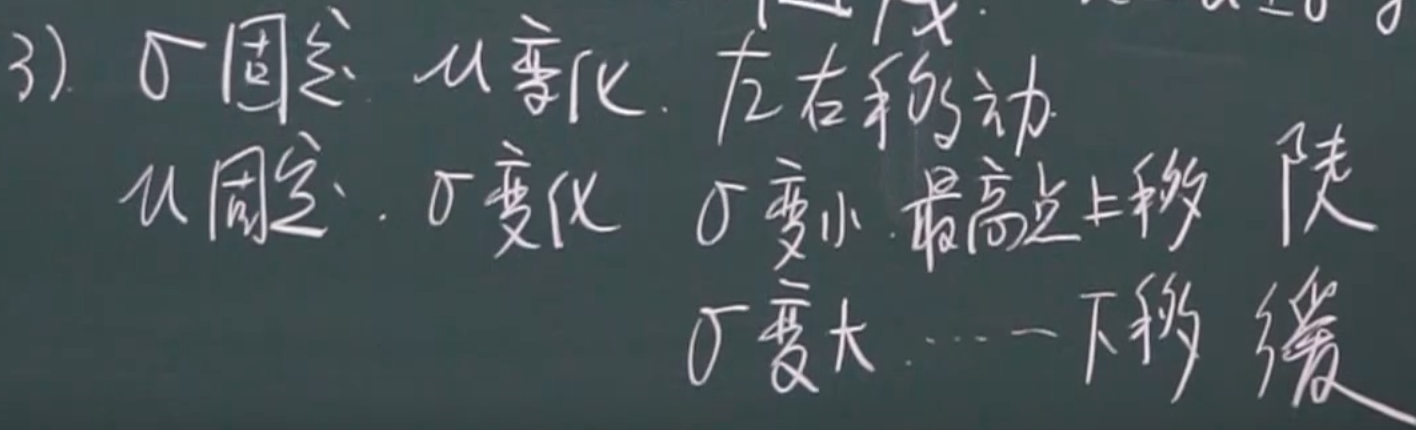 3). σ固定 μ变化. 左右移动
μ固定. σ变化 σ变小. 最高点上移 陡
σ变大 ······ 下移 缓